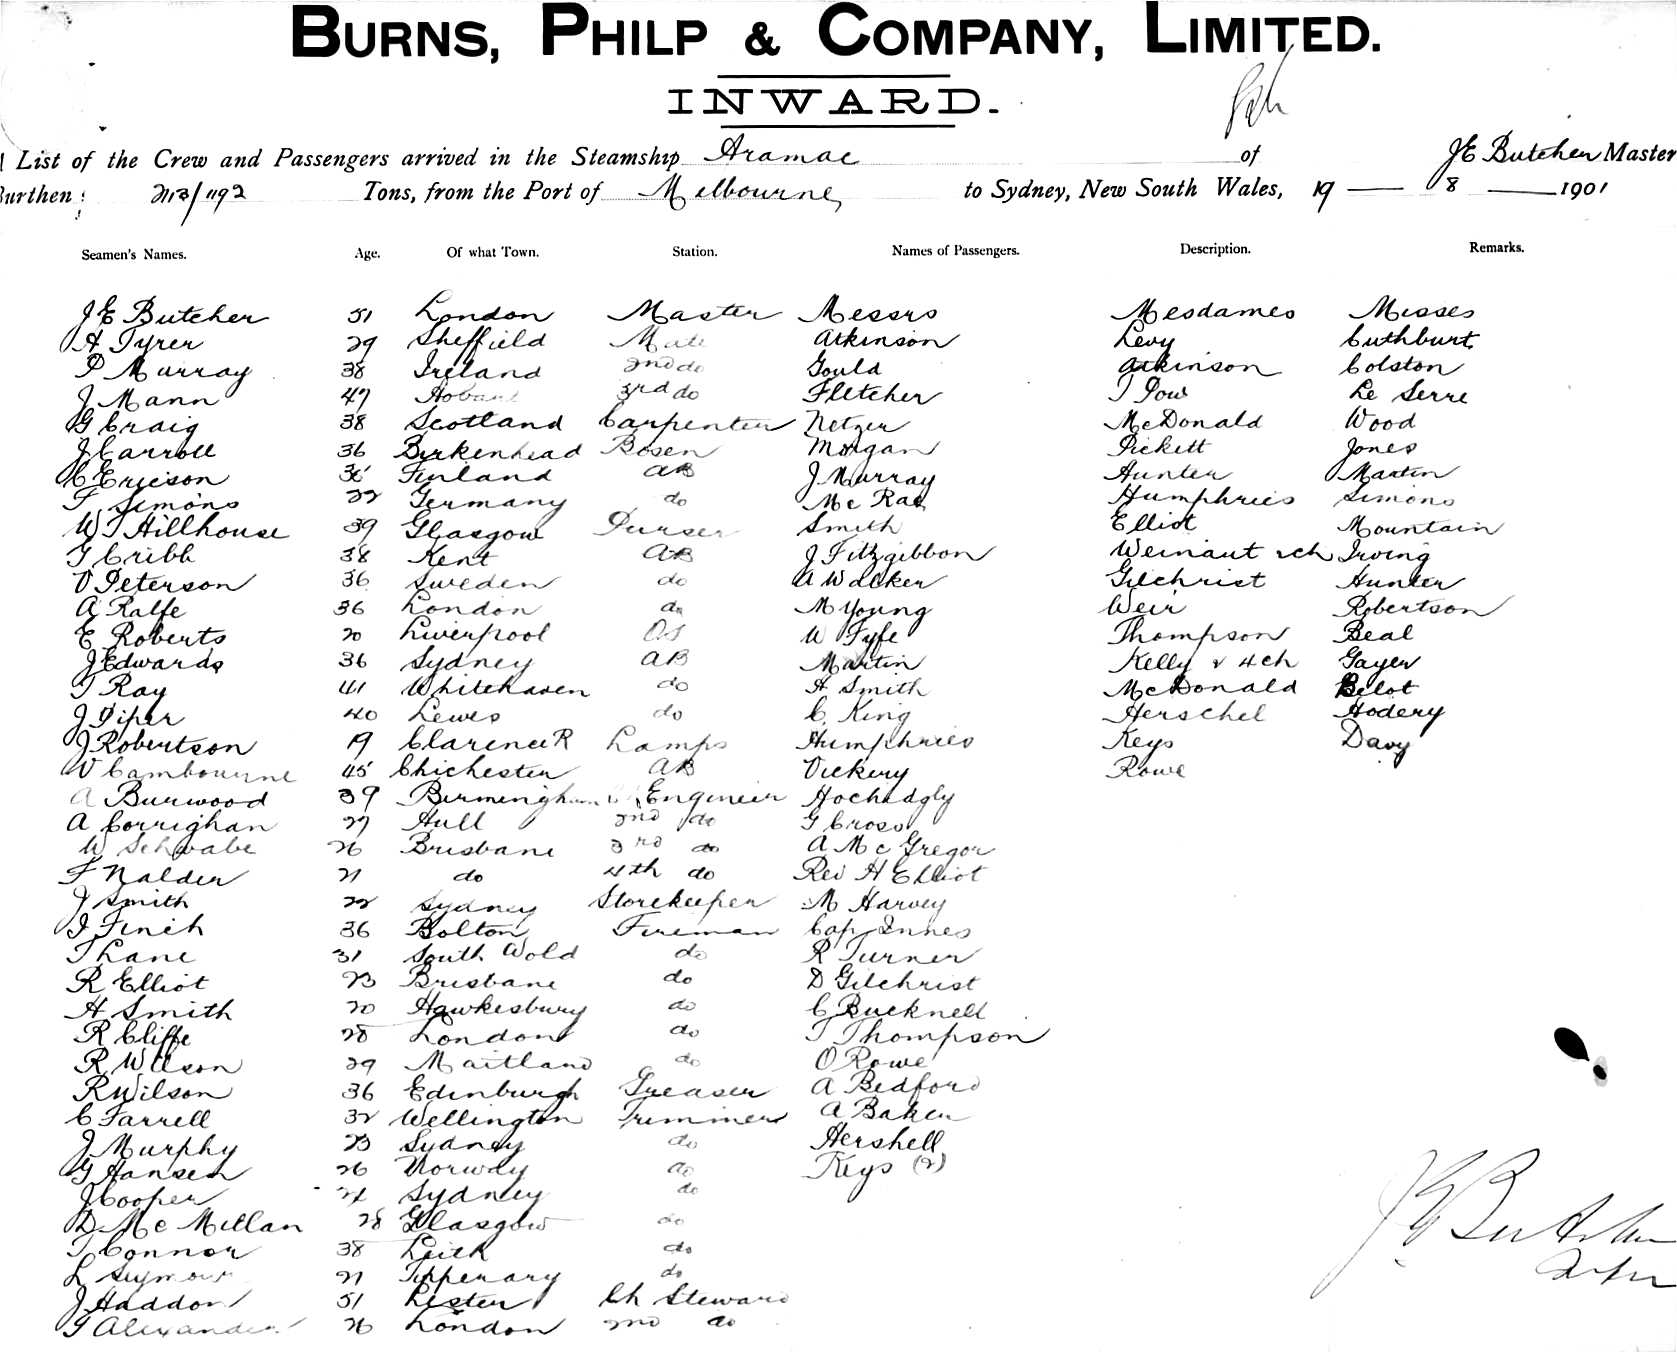 BURNS, PHILP & COMPANY, LIMITED.
INWARD.
List of the Crew and Passengers arrived in the Steamship Aramac of J E Butcher Master
Burthen: 2113/1192 Tons, from the Port of Melbourne to Sydney, New South Wales, 19 — 8 — 1901
Seamen's Names. Age. Of what Town. Station. Names of Passengers. Description. Remarks.
J E Butcher 51 London Master Messrs Mesdames Misses
A Tyrer 29 Sheffield Mate Atkinson Levy Cuthburt
P Murray 38 Ireland 2nd do Gould Atkinson Colston
J Mann 47 Hobart 3rd do Fletcher T Pow Le Serre
G Craig 38 Scotland Carpenter Netzer McDonald Wood
J Carroll 36 Birkenhead Bosen Morgan Pickett Jones
C Ericson Finland AB J Murray Hunter Martin
F Simons 22 Germany do McRae Humphries Simons
W J Hillhouse 39 Glasgow Purser Smith Elliot Mountain
T Cribb 38 Kent AB J Fitzgibbon Irving
O Peterson 36 Sweden do A Walker Gilchrist Hunter
A Ralfe 36 London do M Young Weir Robertson
E Roberts 20 Liverpool OS W Fyfe Thompson Beal
J Edwards 36 Sydney AB Martin Kelly & 4 ch Gayer
T Ray 41 Whitehaven do H Smith McDonald Belot
J Piper 40 Lewes do C King Herschel Hodery
J Robertson 19 Clarence R Lamps Humphries Keys Davy
W Cambourne 45 Chichester AB Vickery Rowe
A Burwood 39 Birmingham Engineer
A Corrighan 27 Hull 2nd do G Cross
W Schwabe 26 Brisbane 3rd do A McGregor
F Nalder 21 do 4th do Rev H Elliot
J Smith 22 Sydney Storekeeper M Harvey
J Finch 36 Bolton Fireman Cap Innes
T Lane 31 South Wold do R Turner
R Elliot 23 Brisbane do D Gilchrist
H Smith 20 Hawkesbury do C Bucknell
R Cliffe 28 London do T Thompson
R Wilson 29 Maitland do O Rowe
R Wilson 36 Edinburgh Greaser A Bedford
C Farrell 32 Wellington Trimmer A Baker
J Murphy 23 Sydney do Hershell
G Hansen 26 Norway do Keys (2)
J Cooper 24 Sydney do
D McMillan 28 Glasgow do
T Connor 38 Leith do
L Seymour 21 Tipperary do
J Haddon 51 Lester Ch Steward
G Alexander 26 London 2nd do
J E Butcher